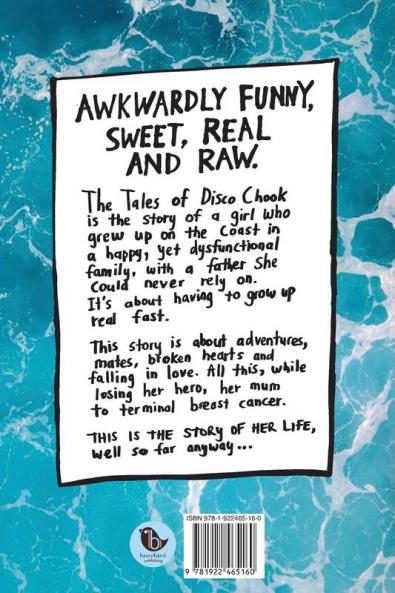 AWKWARDLY FUNNY,
SWEET, REAL
AND RAW.
The Tales of Disco Chook
is the story of a girl who
grew up on the Coast in
a happy, yet dysfunctional
family, with a father She
could never rely on.
It's about having to grow up
real fast.
This story is about adventures,
mates, broken hearts and
falling in love. All this, while
losing her hero, her mum
to terminal breast cancer.
THIS IS THE STORY OF HER LIFE,
well so far anyway...
ISBN 978-1-922465-16-0
b
busybird
publishing
9 781922 465160